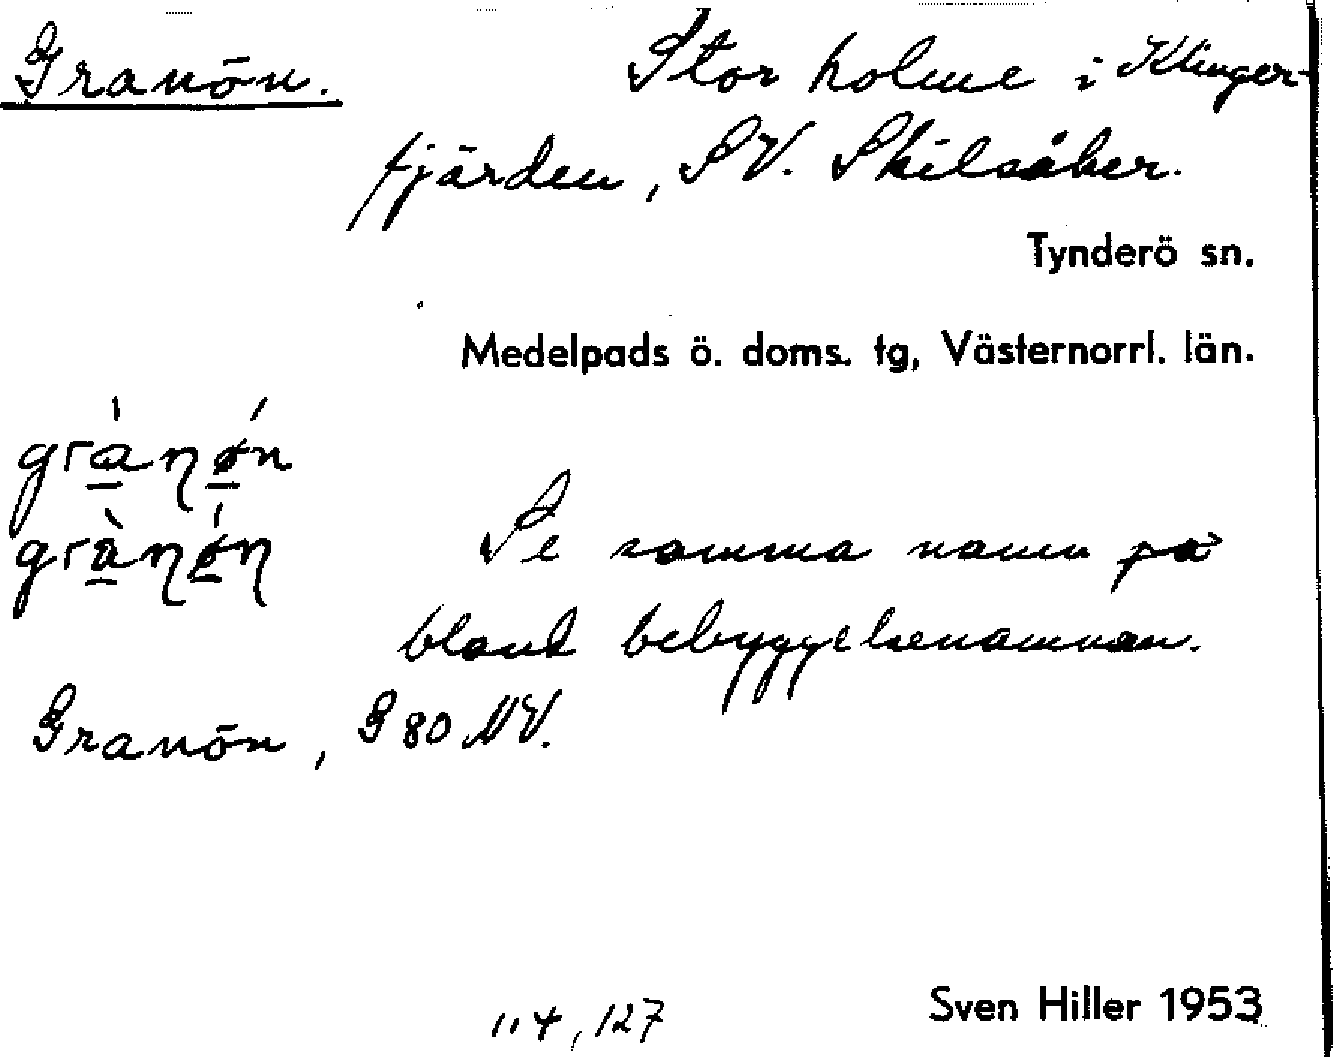 Granön. Stor holme i Klinger-
fjärden, SV. Skilsåker.
Tynderö sn.
Medelpads ö. doms. tg, Västernorrl. län.
Se samma namn på
bland bebyggelsenamnen.
Granön, G 80 NV.
114, 127
Sven Hiller 1953